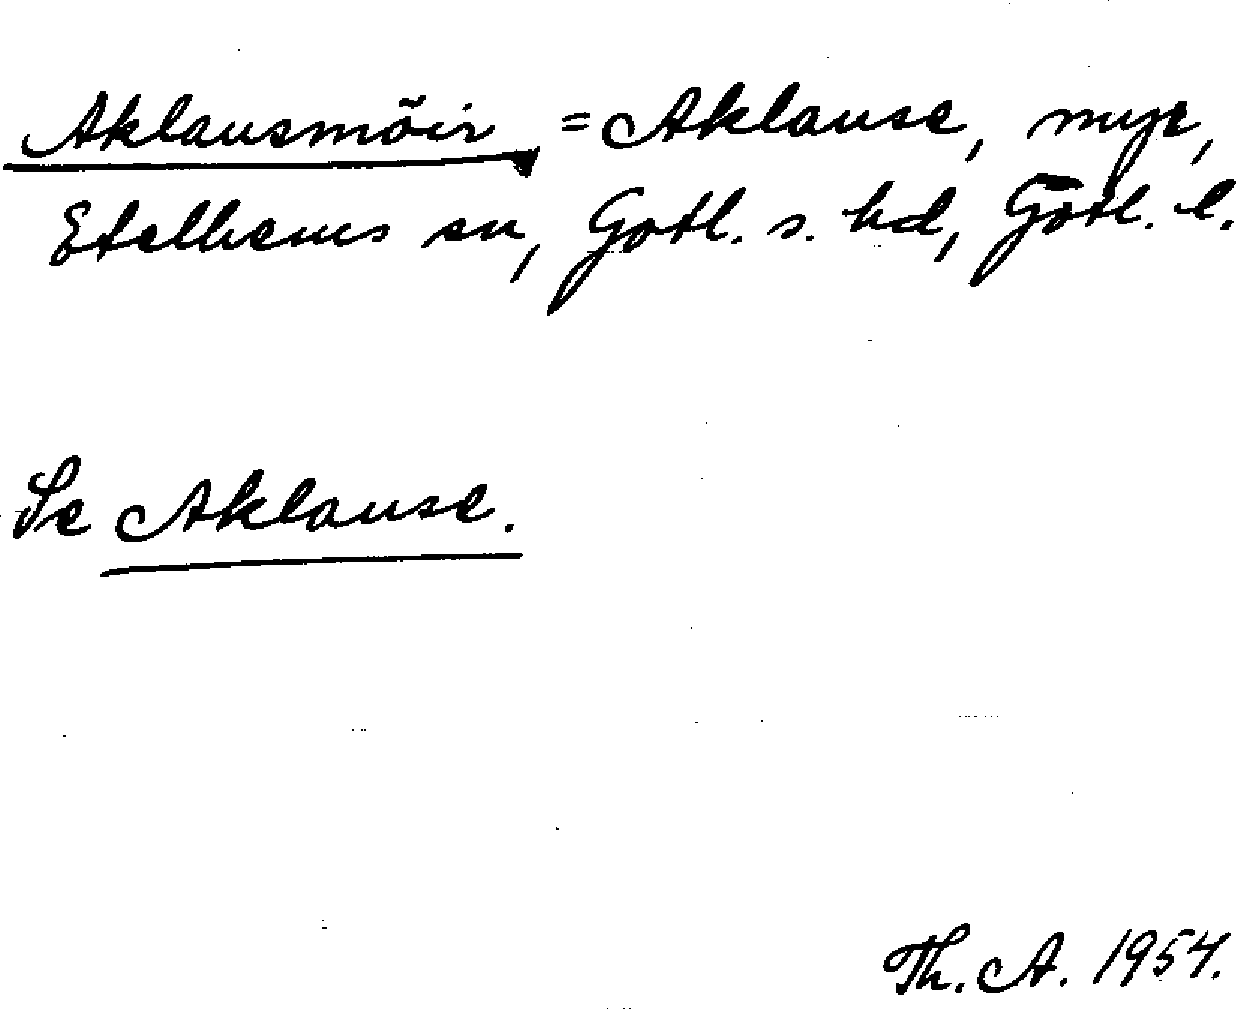 Aklausmõir = Aklause, myr,
Etelhems sn, Gotl. s. hd, Gotl. l.
Se Aklause.
Th. A. 1954.